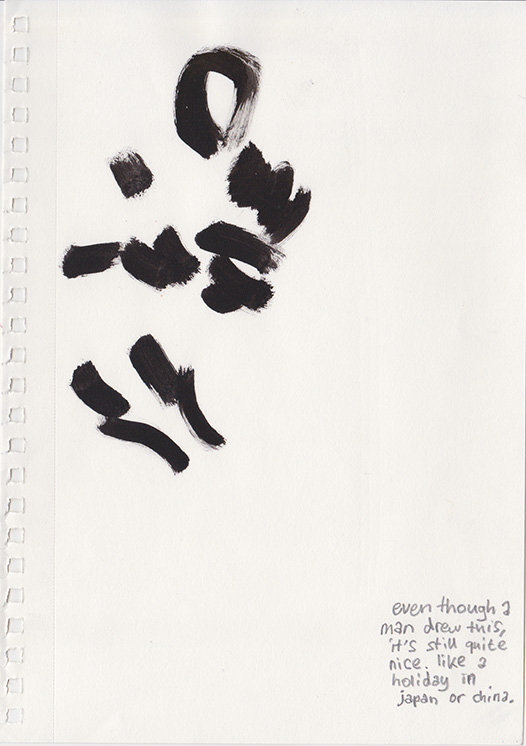 even though a
man drew this,
it's still quite
nice. like a
holiday in
japan or china.